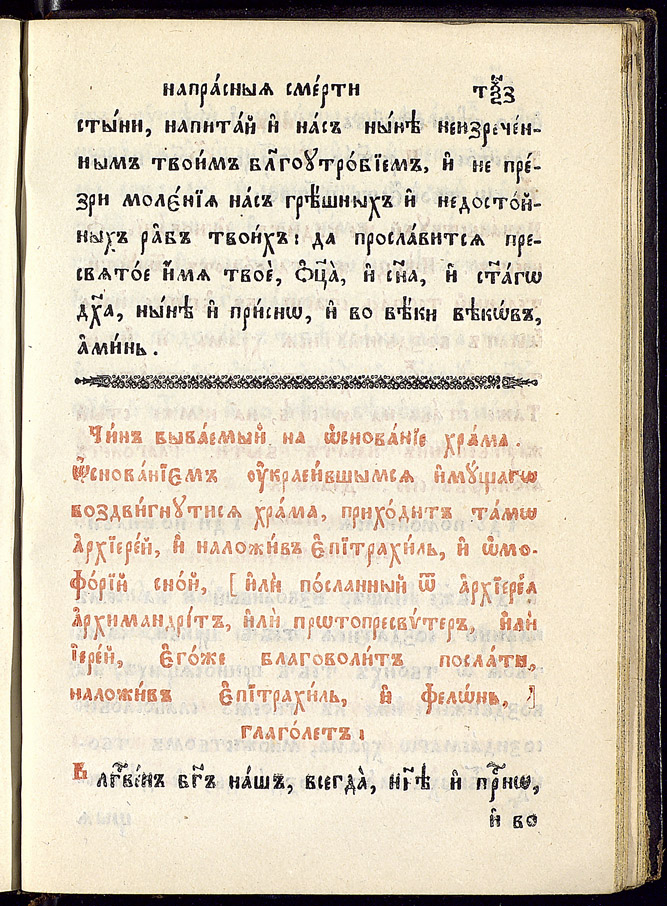 напра́сныѧ сме́рти тѯ҃з
сты́ни, напита́й и҆ на́съ ны́нѣ неизрече́н-
нымъ твои́мъ бл҃гоꙋтро́бїемъ, и҆ не пре́-
зри моле́нїѧ на́съ грѣ́шныхъ и҆ недосто́й-
ныхъ ра̑бъ твои́хъ: да просла́витсѧ пре-
свѧто́е и҆́мѧ твоѐ, ѻ҆ц҃а̀, и҆ сн҃а, и҆ ст҃а́гѡ
дх҃а, ны́нѣ и҆ при́снѡ, и҆ во вѣ́ки вѣкѡ́въ,
а҆ми́нь.
Чи́нъ быва́емый на ѡ҆снова́нїе хра́ма.
Ѡ҆снова́нїємъ ᲂу҆краси́вшымсѧ и҆мꙋ́щагѡ
воздви́гнꙋтисѧ хра́ма, прихо́дитъ та́мѡ
а҆рхїере́й, и҆ наложи́въ є҆пїтрахи́ль, и҆ ѡ҆мо-
фо́рїй сво́й, [ и҆лѝ по́сланный ѿ а҆рхїере́ѧ
а҆рхимандрі́тъ, и҆лѝ прѡтопресвѵ́теръ, и҆лѝ
і҆ере́й, є҆го́же благоволи́тъ посла́ти,
наложи́въ є҆пїтрахи́ль, и҆ фелѡ́нь, ]
глаго́летъ:
Блгⷭ҇ве́нъ бг҃ъ на́шъ, всегда̀, нн҃ѣ и҆ при́снѡ,
и҆ во